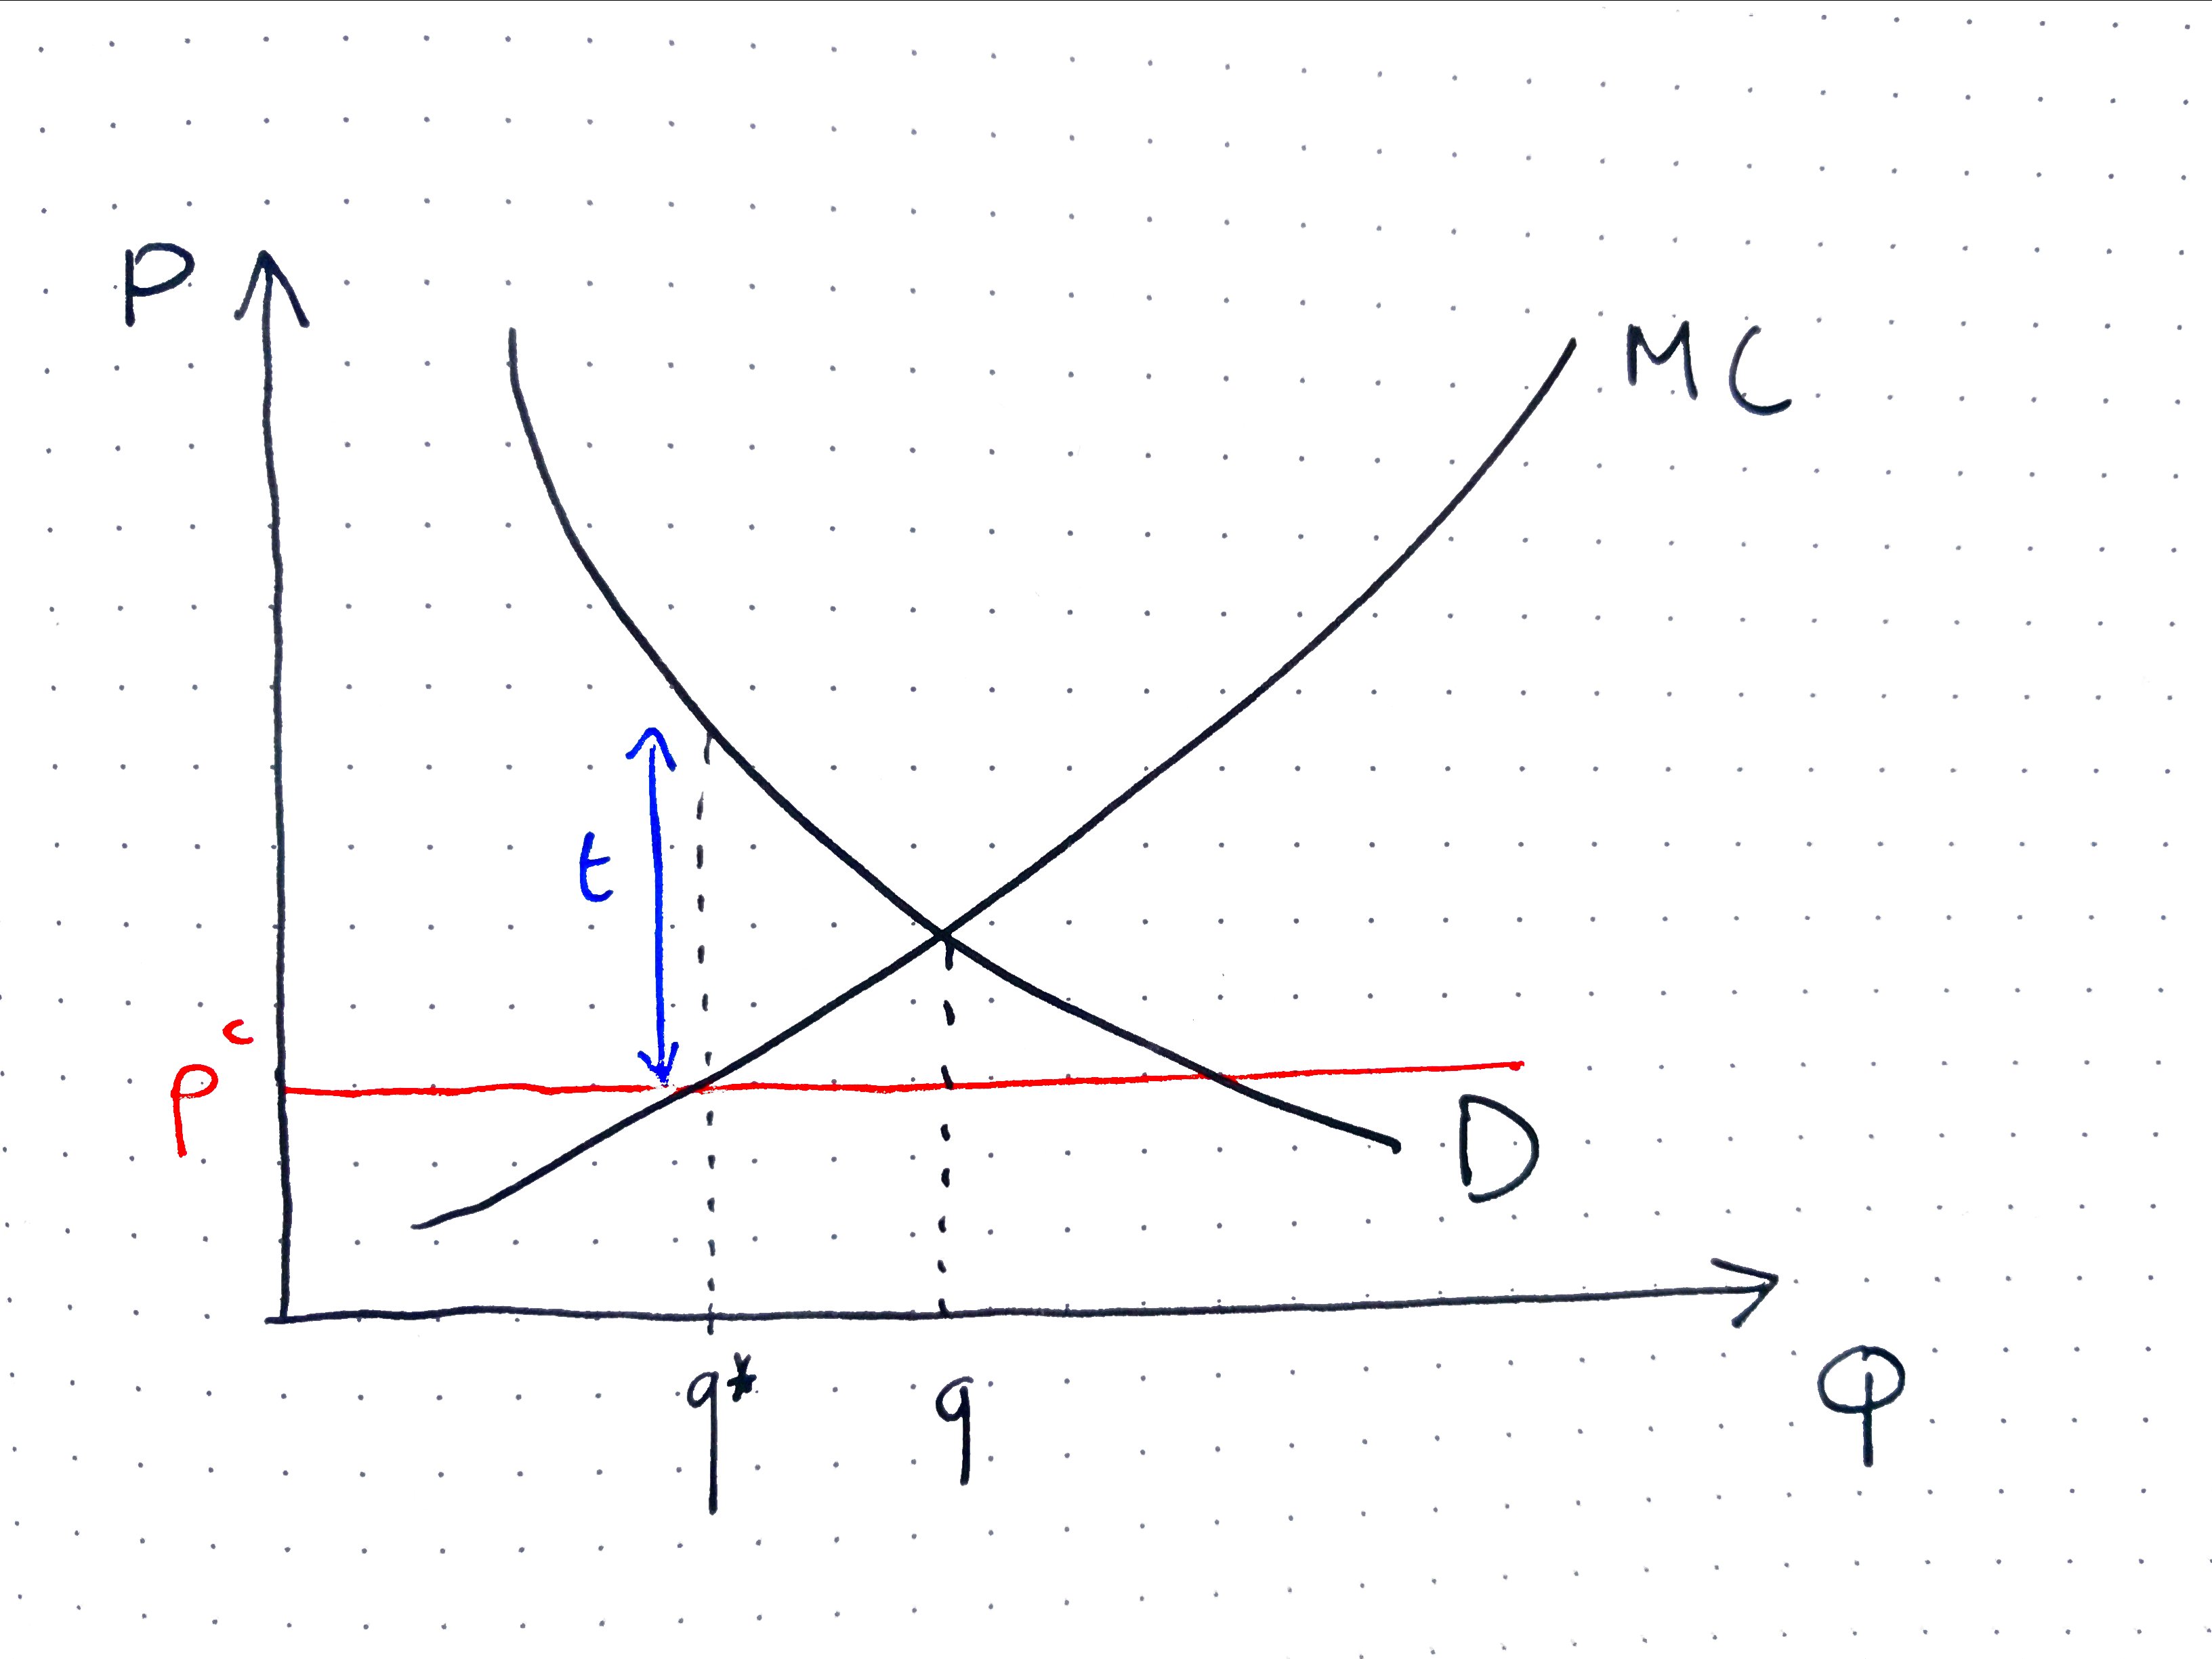 P
MC
t
pᶜ
D
q*
q
Q